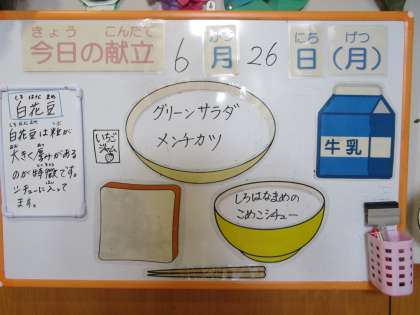 きょう こんだて
今日の献立
6 がつ 月 26 にち 日 げつ (月)
しろ はな まめ
白花豆
白花豆は粒が
大きく厚みがある
のが特徴です。
シチューに入って
ます。
いちご
ジャム
グリーンサラダ
メンチカツ
牛乳
しろはなまめの
こめこシチュー